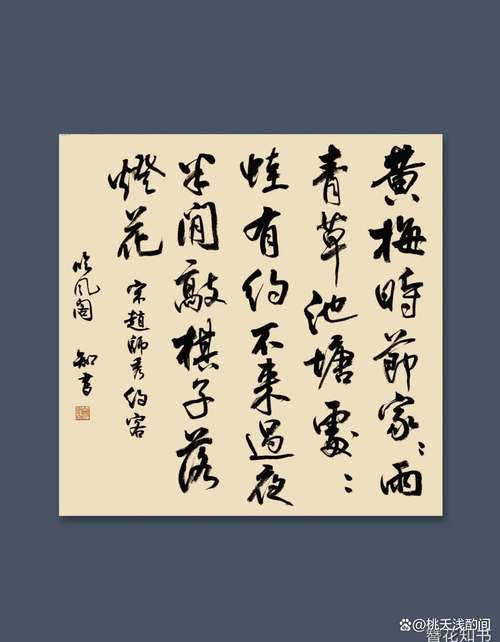 黄梅時節家〻雨
青草池塘處〻
蛙有約不来過夜
半閒敲棋子落
燈花
宋趙師秀約客
吟风阁 知書
@桃夭浅酌间
簪花知书